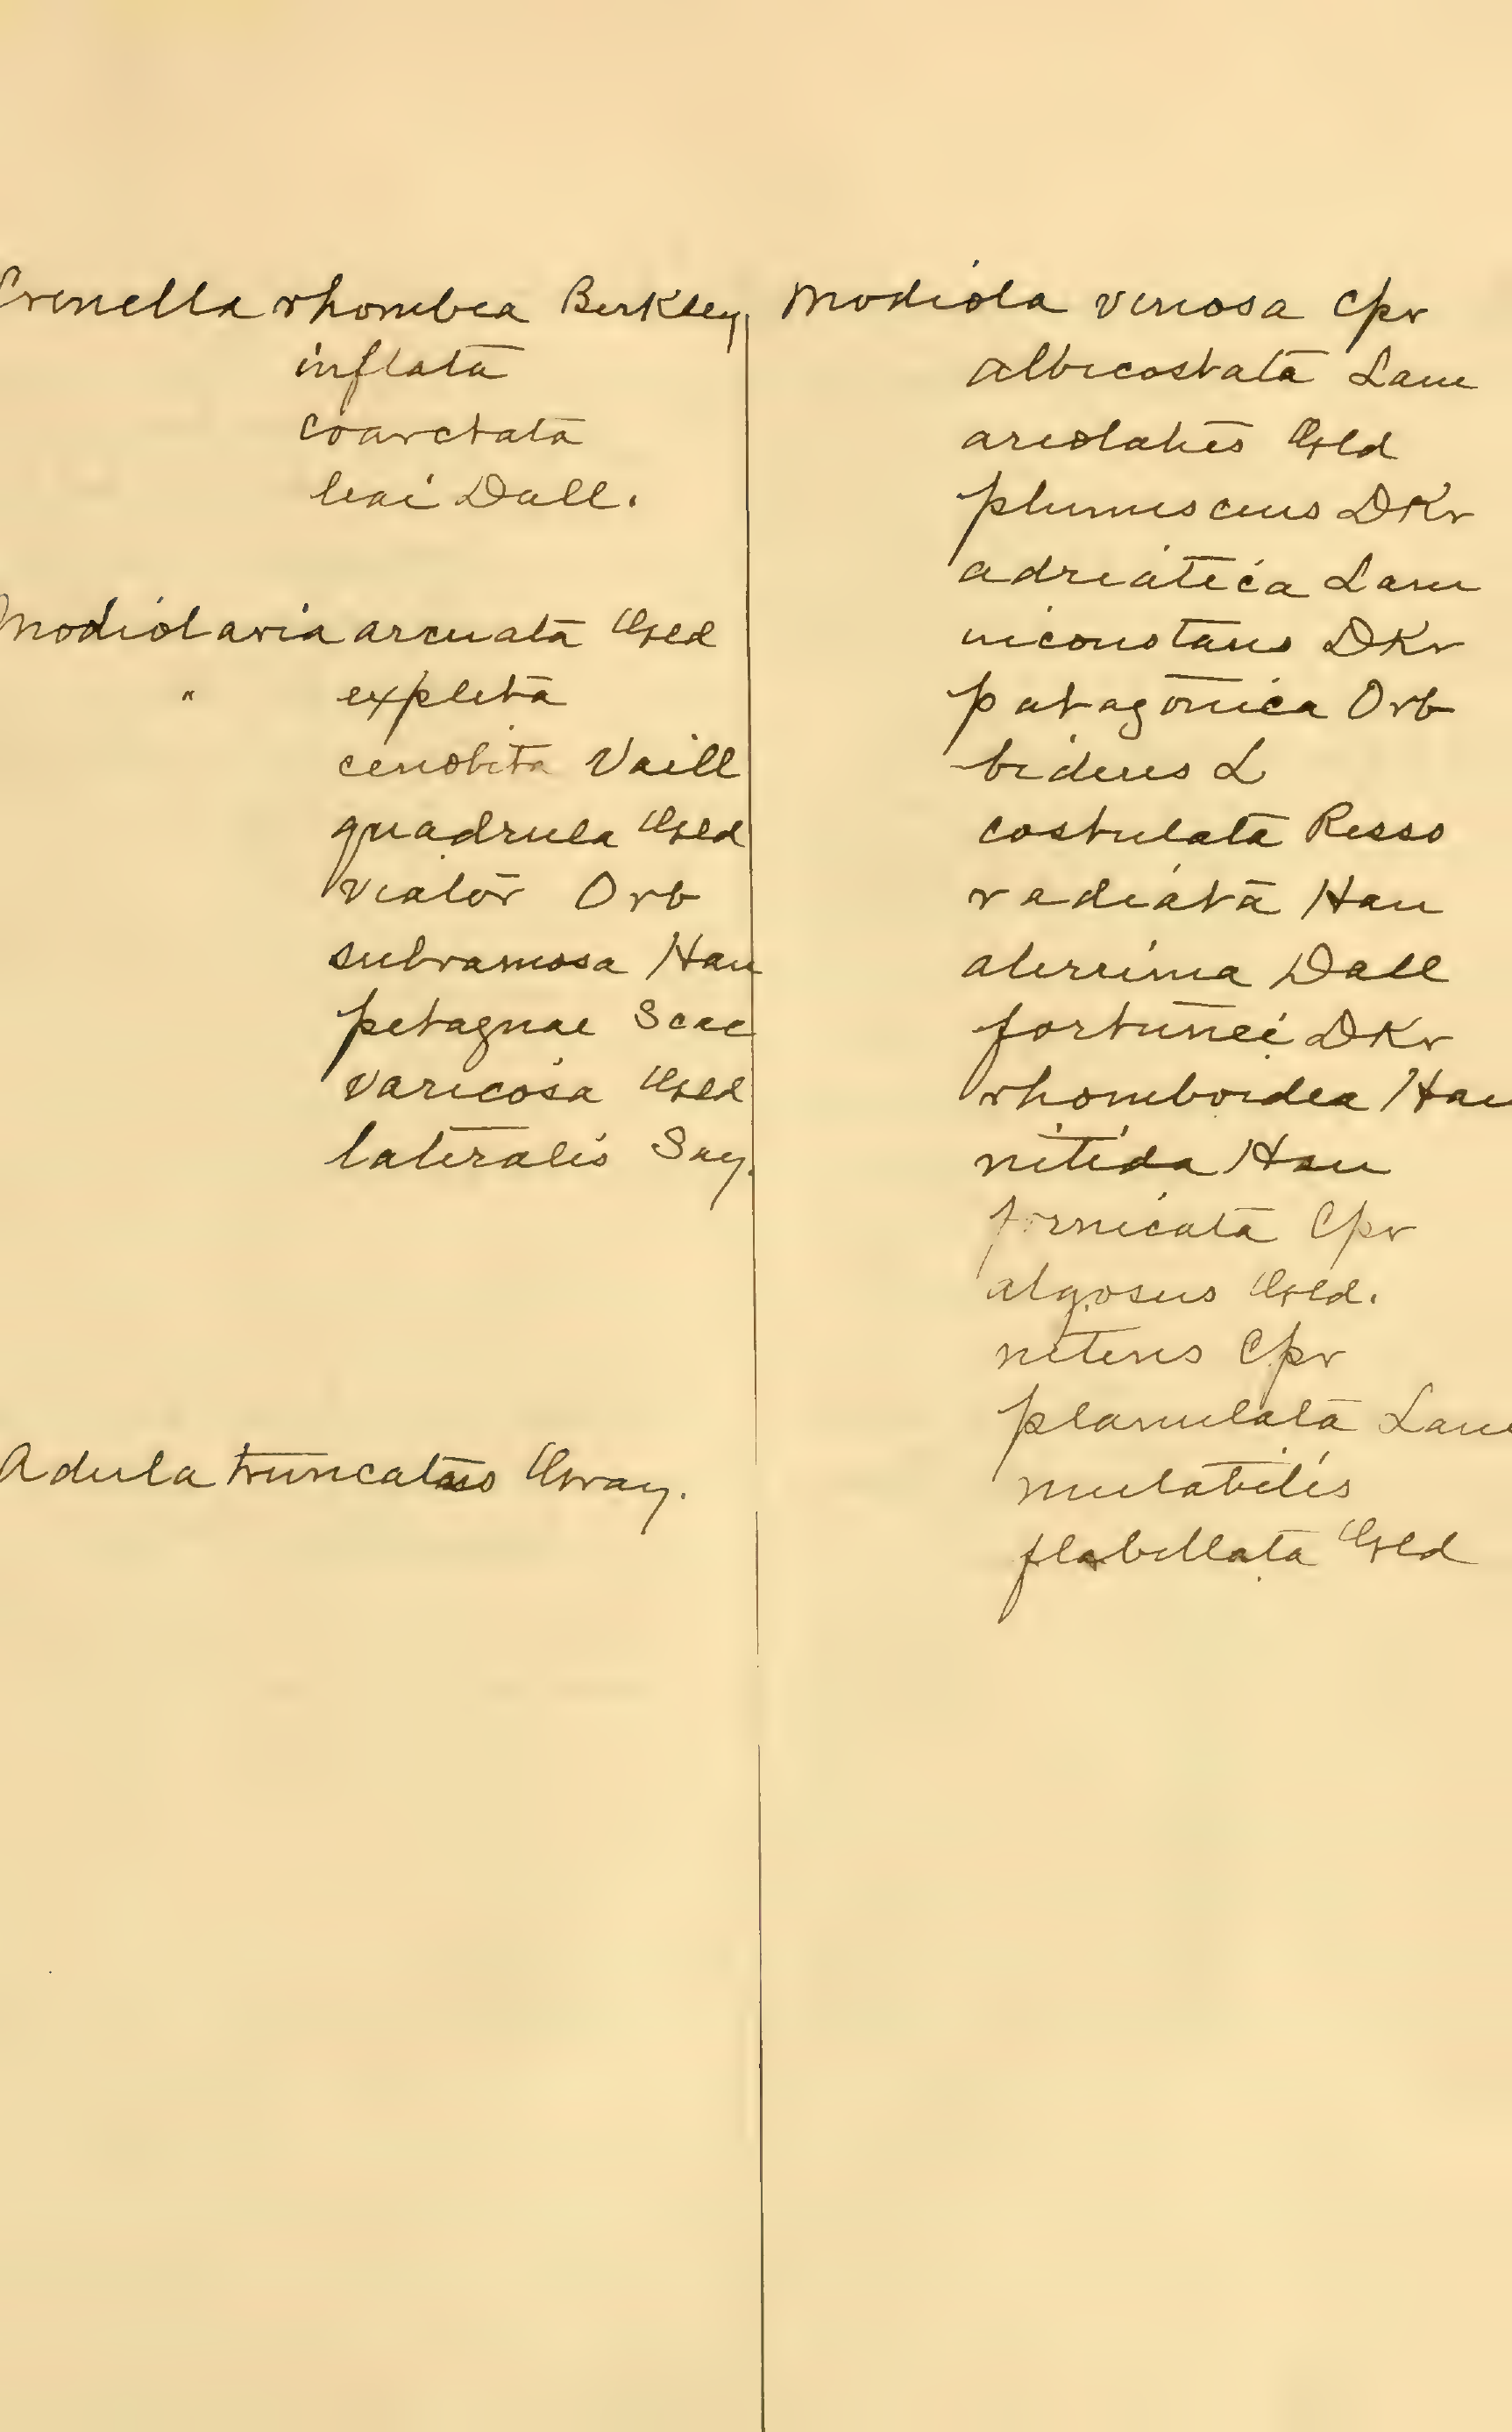 Crenella rhombea Berkley
inflata
coarctata
leai Dall.
Modiolaria arcuata Gld
" expleta
cenobita Vaill
quadrula Gld
viator Orb
subramosa Han
petagnae Scac
varicosa Gld
lateralis Say.
Adula truncatus Gray.
Modiola venosa Cpr
albicostata Lam
areolatus Gld
plumescens DKr
adriatica Lam
inconstans DKr
patagonica Orb
bidens L
costulata Risso
radiata Han
aterrima Dall
fortunei DKr
rhomboidea Han
nitida Han
fornicata Cpr
algosus Gld.
nitens Cpr
planulata Lam
mutabilis
flabellata Gld